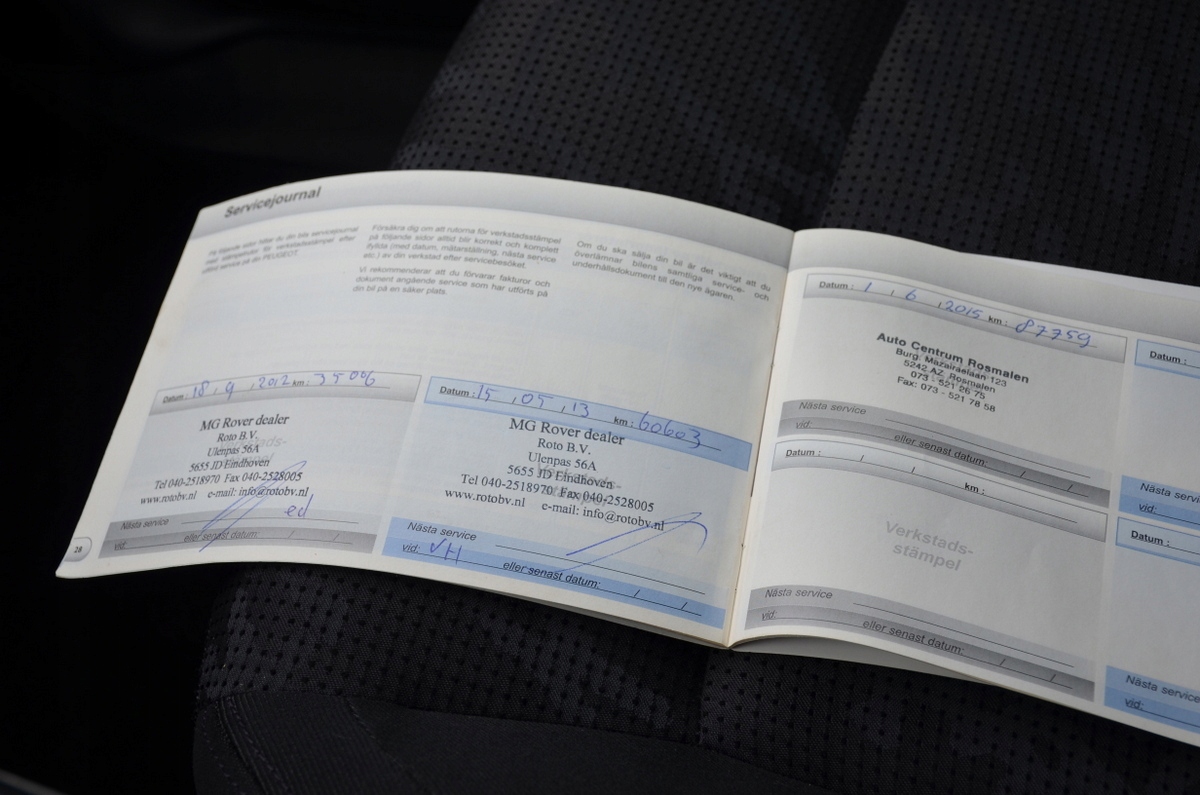 Servicejournal
På följande sidor hittar du din bils servicejournal
med stämpelrutor för verkstadsstämpel efter
utförd service på din PEUGEOT.
Försäkra dig om att rutorna för verkstadsstämpel
på följande sidor alltid blir korrekt och komplett
ifyllda (med datum, mätarställning, nästa service
etc.) av din verkstad efter servicebesöket.
Vi rekommenderar att du förvarar fakturor och
dokument angående service som har utförts på
din bil på en säker plats.
Om du ska sälja din bil är det viktigt att du
överlämnar bilens samtliga service- och
underhållsdokument till den nye ägaren.
Datum: 18, 9, 2012 km: 35006
MG Rover dealer
Roto B.V.
Ulenpas 56A
5655 JD Eindhoven
Tel 040-2518970 Fax 040-2528005
www.rotobv.nl e-mail: info@rotobv.nl
Nästa service
vid: eller senast datum: / /
28
Datum: 15, 05, 13 km: 60603
MG Rover dealer
Roto B.V.
Ulenpas 56A
5655 JD Eindhoven
Tel 040-2518970 Fax 040-2528005
www.rotobv.nl e-mail: info@rotobv.nl
Nästa service
vid: VH eller senast datum: / /
Datum: 1, 6, 2015 km: 87759
Auto Centrum Rosmalen
Burg. Mazairaclaan 123
5242 AZ Rosmalen
073 - 521 26 75
Fax: 073 - 521 78 58
Nästa service
vid: eller senast datum: / /
Datum: / / km:
Verkstads-
stämpel
Nästa service
vid: eller senast datum: / /
Datum:
Nästa servic
vid:
Datum:
Nästa service
vid: